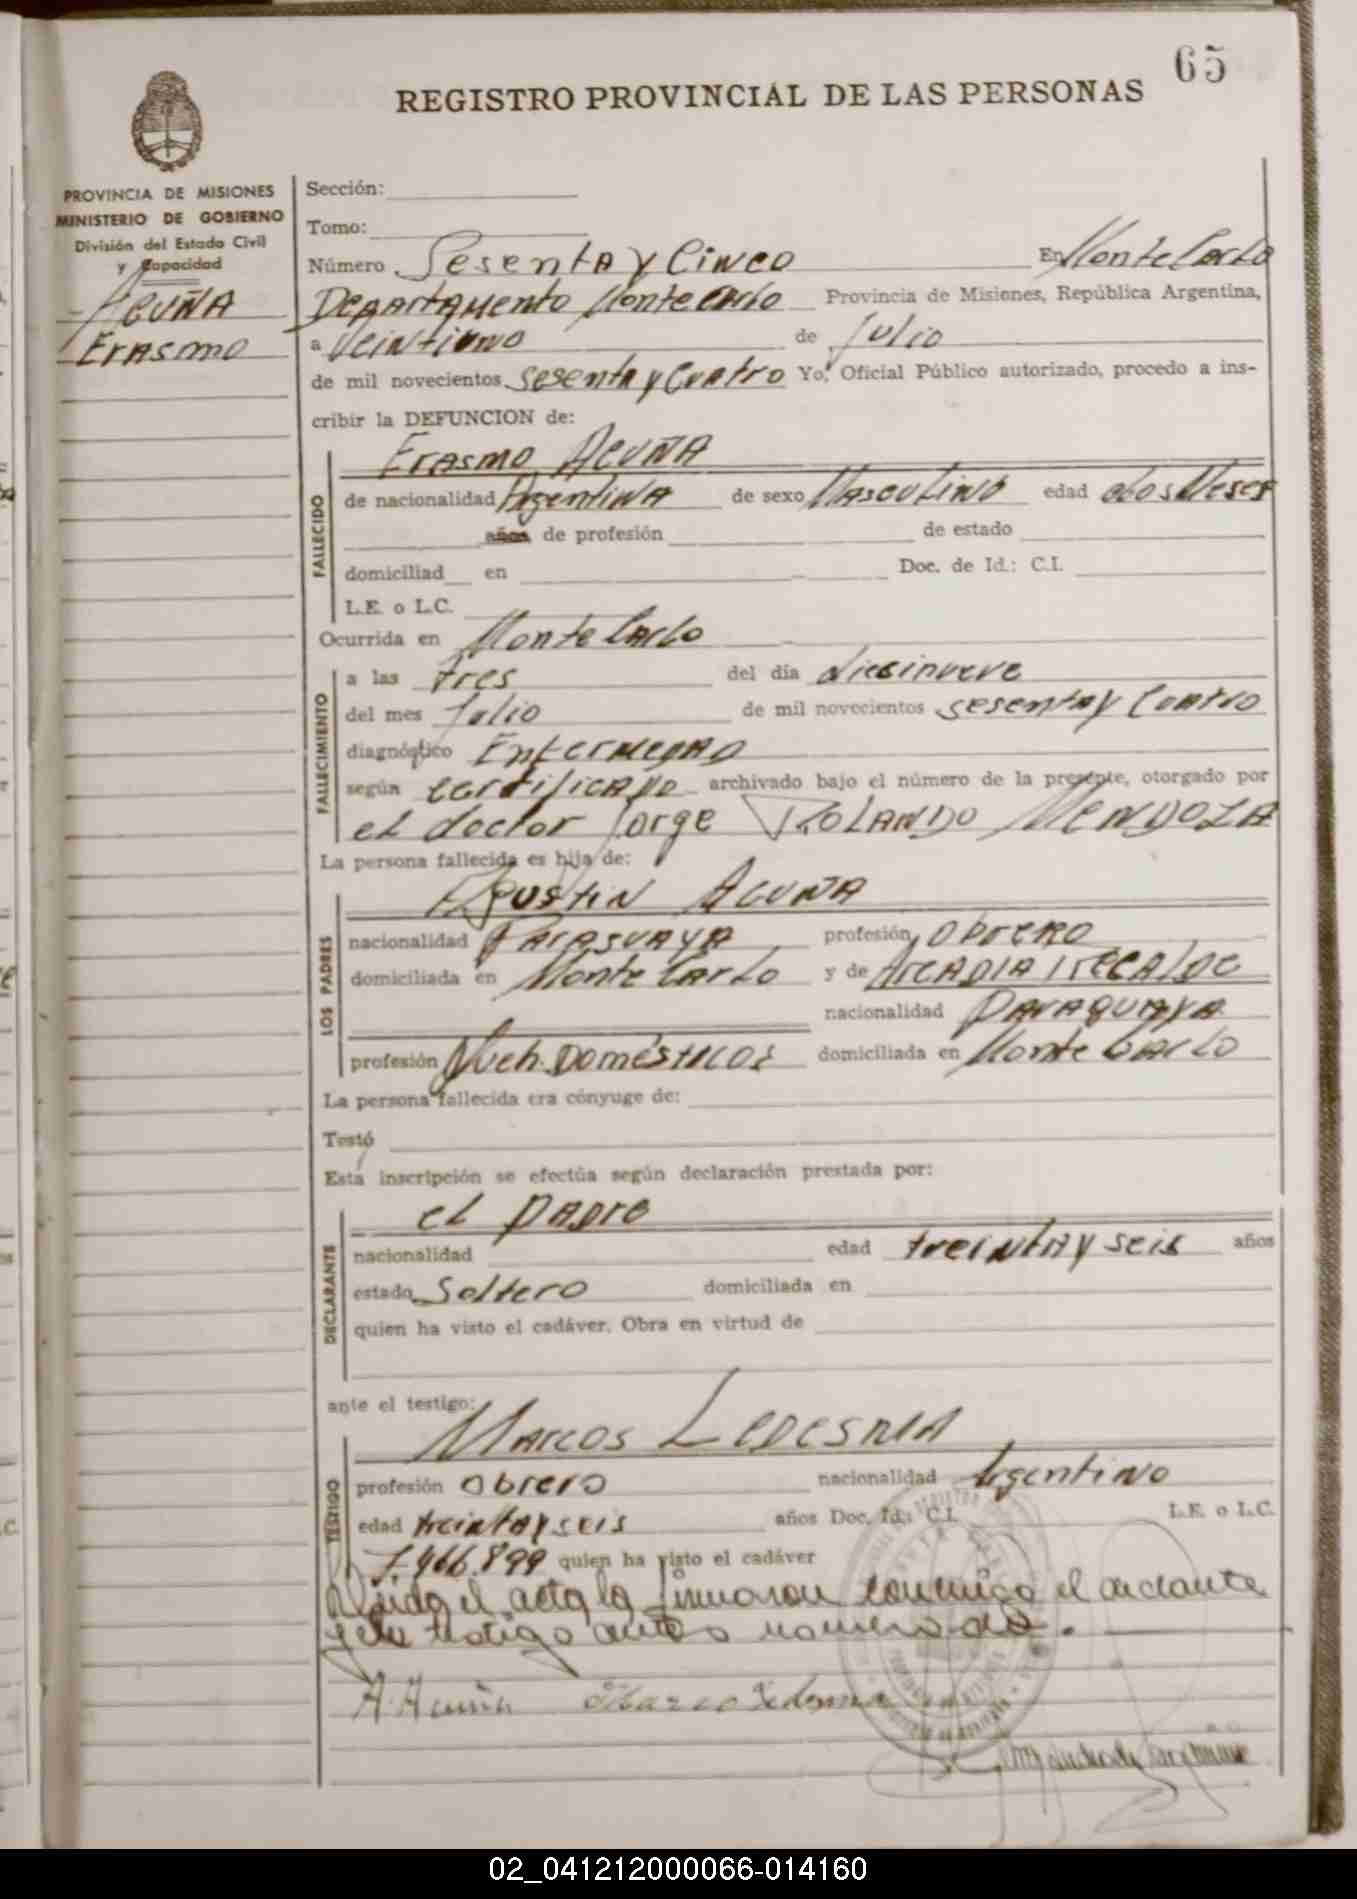 65
REGISTRO PROVINCIAL DE LAS PERSONAS
PROVINCIA DE MISIONES
MINISTERIO DE GOBIERNO
División del Estado Civil
y Capacidad
ACUÑA
Erasmo
Sección:
Tomo:
Número Sesenta y Cinco En Monte Carlo
Departamento Monte Carlo Provincia de Misiones, República Argentina,
a Veintiuno de Julio
de mil novecientos sesenta y Cuatro Yo, Oficial Público autorizado, procedo a ins-
cribir la DEFUNCION de:
Erasmo ACUÑA
FALLECIDO
de nacionalidad Argentina de sexo Masculino edad dos Meses
años de profesión de estado
domiciliad en Doc. de Id.: C.I.
L.E. o L.C.
Ocurrida en Monte Carlo
FALLECIMIENTO
a las tres del día diecinueve
del mes Julio de mil novecientos sesenta y Cuatro
diagnóstico Enfermedad
según certificado archivado bajo el número de la presente, otorgado por
el doctor Jorge ROLANDO MENDOZA
La persona fallecida es hija de:
LOS PADRES
Agustin Acuña
nacionalidad Paraguaya profesión Obrero
domiciliada en Monte Carlo y de ARCADIA RECALDE
nacionalidad Paraguaya
profesión Queh. Domésticos domiciliada en Monte Carlo
La persona fallecida era cónyuge de:
Testó
Esta inscripción se efectúa según declaración prestada por:
DECLARANTE
el padre
nacionalidad edad treinta y seis años
estado Soltero domiciliada en
quien ha visto el cadáver. Obra en virtud de
ante el testigo:
TESTIGO
Marcos Ledesma
profesión Obrero nacionalidad Argentino
edad treinta y seis años Doc. Id.: C.I. L.E. o L.C.
7.466.899 quien ha visto el cadáver
Leida el acta la firmaron conmigo el declarante
y el testigo antes nomenado.
A. Acuña Marco Ledesma
02_041212000066-014160